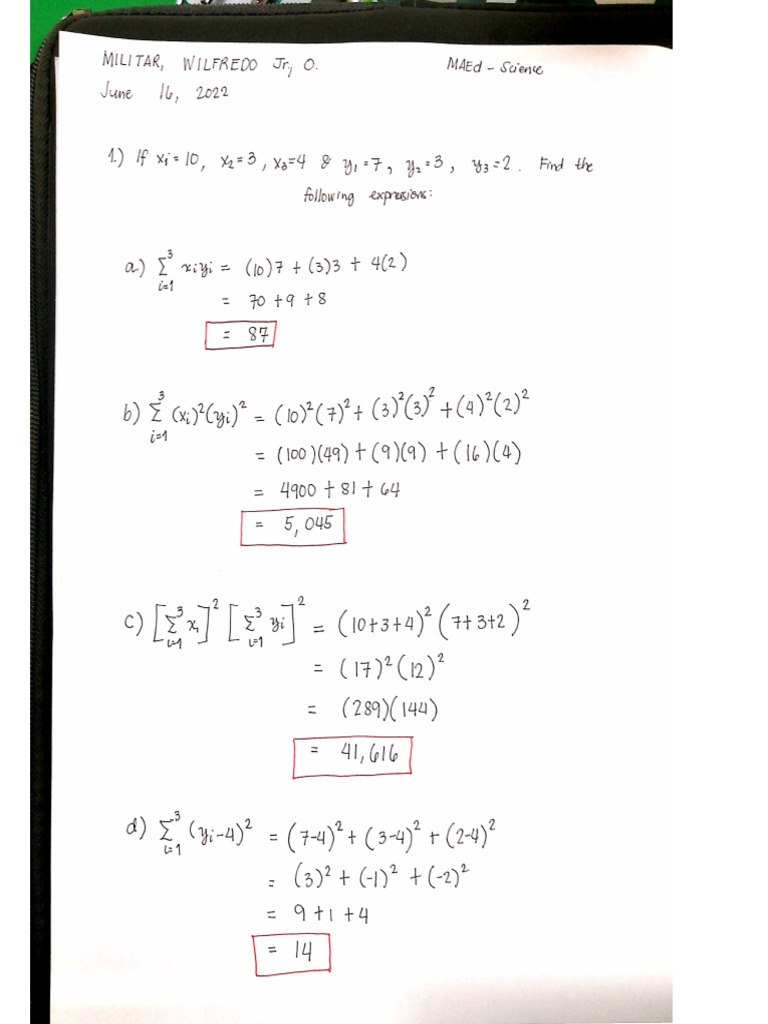 MILITAR, WILFREDO Jr, O. MAEd - Science
June 16, 2022
1.) If x₁ = 10, x₂ = 3, x₃ = 4 & y₁ = 7, y₂ = 3, y₃ = 2. Find the
following expressions:
a) Σ³ᵢ₌₁ xᵢyᵢ = (10)7 + (3)3 + 4(2)
= 70 + 9 + 8
= 87
b) Σ³ᵢ₌₁ (xᵢ)²(yᵢ)² = (10)²(7)² + (3)²(3)² + (4)²(2)²
= (100)(49) + (9)(9) + (16)(4)
= 4900 + 81 + 64
= 5,045
c) [Σ³ᵢ₌₁ xᵢ]² [Σ³ᵢ₌₁ yᵢ]² = (10+3+4)² (7+3+2)²
= (17)² (12)²
= (289)(144)
= 41,616
d) Σ³ᵢ₌₁ (yᵢ-4)² = (7-4)² + (3-4)² + (2-4)²
= (3)² + (-1)² + (-2)²
= 9 + 1 + 4
= 14